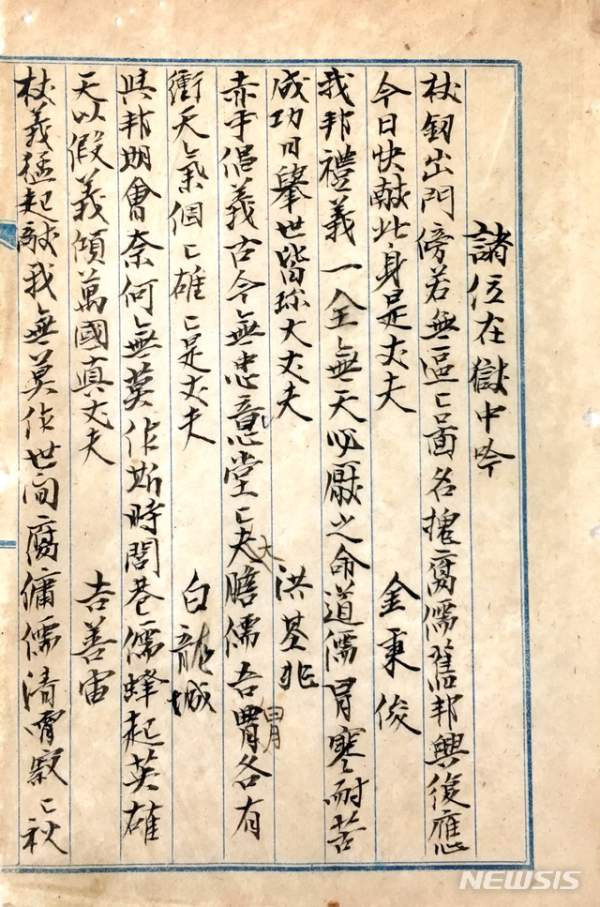 諸位在獄中吟
杖劒出門傍若無區〻啚名愧腐儒舊邦興復應
今日快献此身是丈夫 金秉俊
我邦禮義一全無天必厭之命道儒胃寒耐苦
成功日擧世皆球大丈夫 洪基兆
赤手倡義古今無忠意堂〻大夫膽儒吾胃胃各有
衝天氣個〻雄〻是丈夫 白龍城
與邦期會奈何無莫作斯時閭巷儒蜂起英雄
天以假義傾萬國真丈夫 吉善宙
杖義猛起敵我無莫作世间腐庸儒清宵寂〻秋
NEWSIS